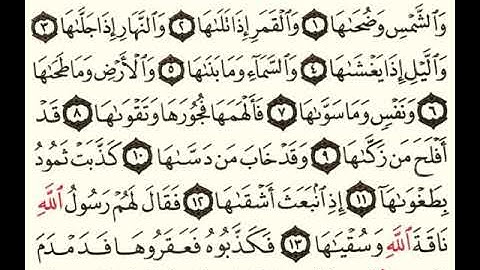 وَٱلشَّمْسِ وَضُحَىٰهَا ١ وَٱلْقَمَرِ إِذَا تَلَىٰهَا ٢ وَٱلنَّهَارِ إِذَا جَلَّىٰهَا ٣
وَٱلَّيْلِ إِذَا يَغْشَىٰهَا ٤ وَٱلسَّمَآءِ وَمَا بَنَىٰهَا ٥ وَٱلْأَرْضِ وَمَا طَحَىٰهَا
٦ وَنَفْسٍ وَمَا سَوَّىٰهَا ٧ فَأَلْهَمَهَا فُجُورَهَا وَتَقْوَىٰهَا ٨ قَدْ
أَفْلَحَ مَن زَكَّىٰهَا ٩ وَقَدْ خَابَ مَن دَسَّىٰهَا ١٠ كَذَّبَتْ ثَمُودُ
بِطَغْوَىٰهَآ ١١ إِذِ ٱنۢبَعَثَ أَشْقَىٰهَا ١٢ فَقَالَ لَهُمْ رَسُولُ ٱللَّهِ
نَاقَةَ ٱللَّهِ وَسُقْيَـٰهَا ١٣ فَكَذَّبُوهُ فَعَقَرُوهَا فَدَمْدَمَ